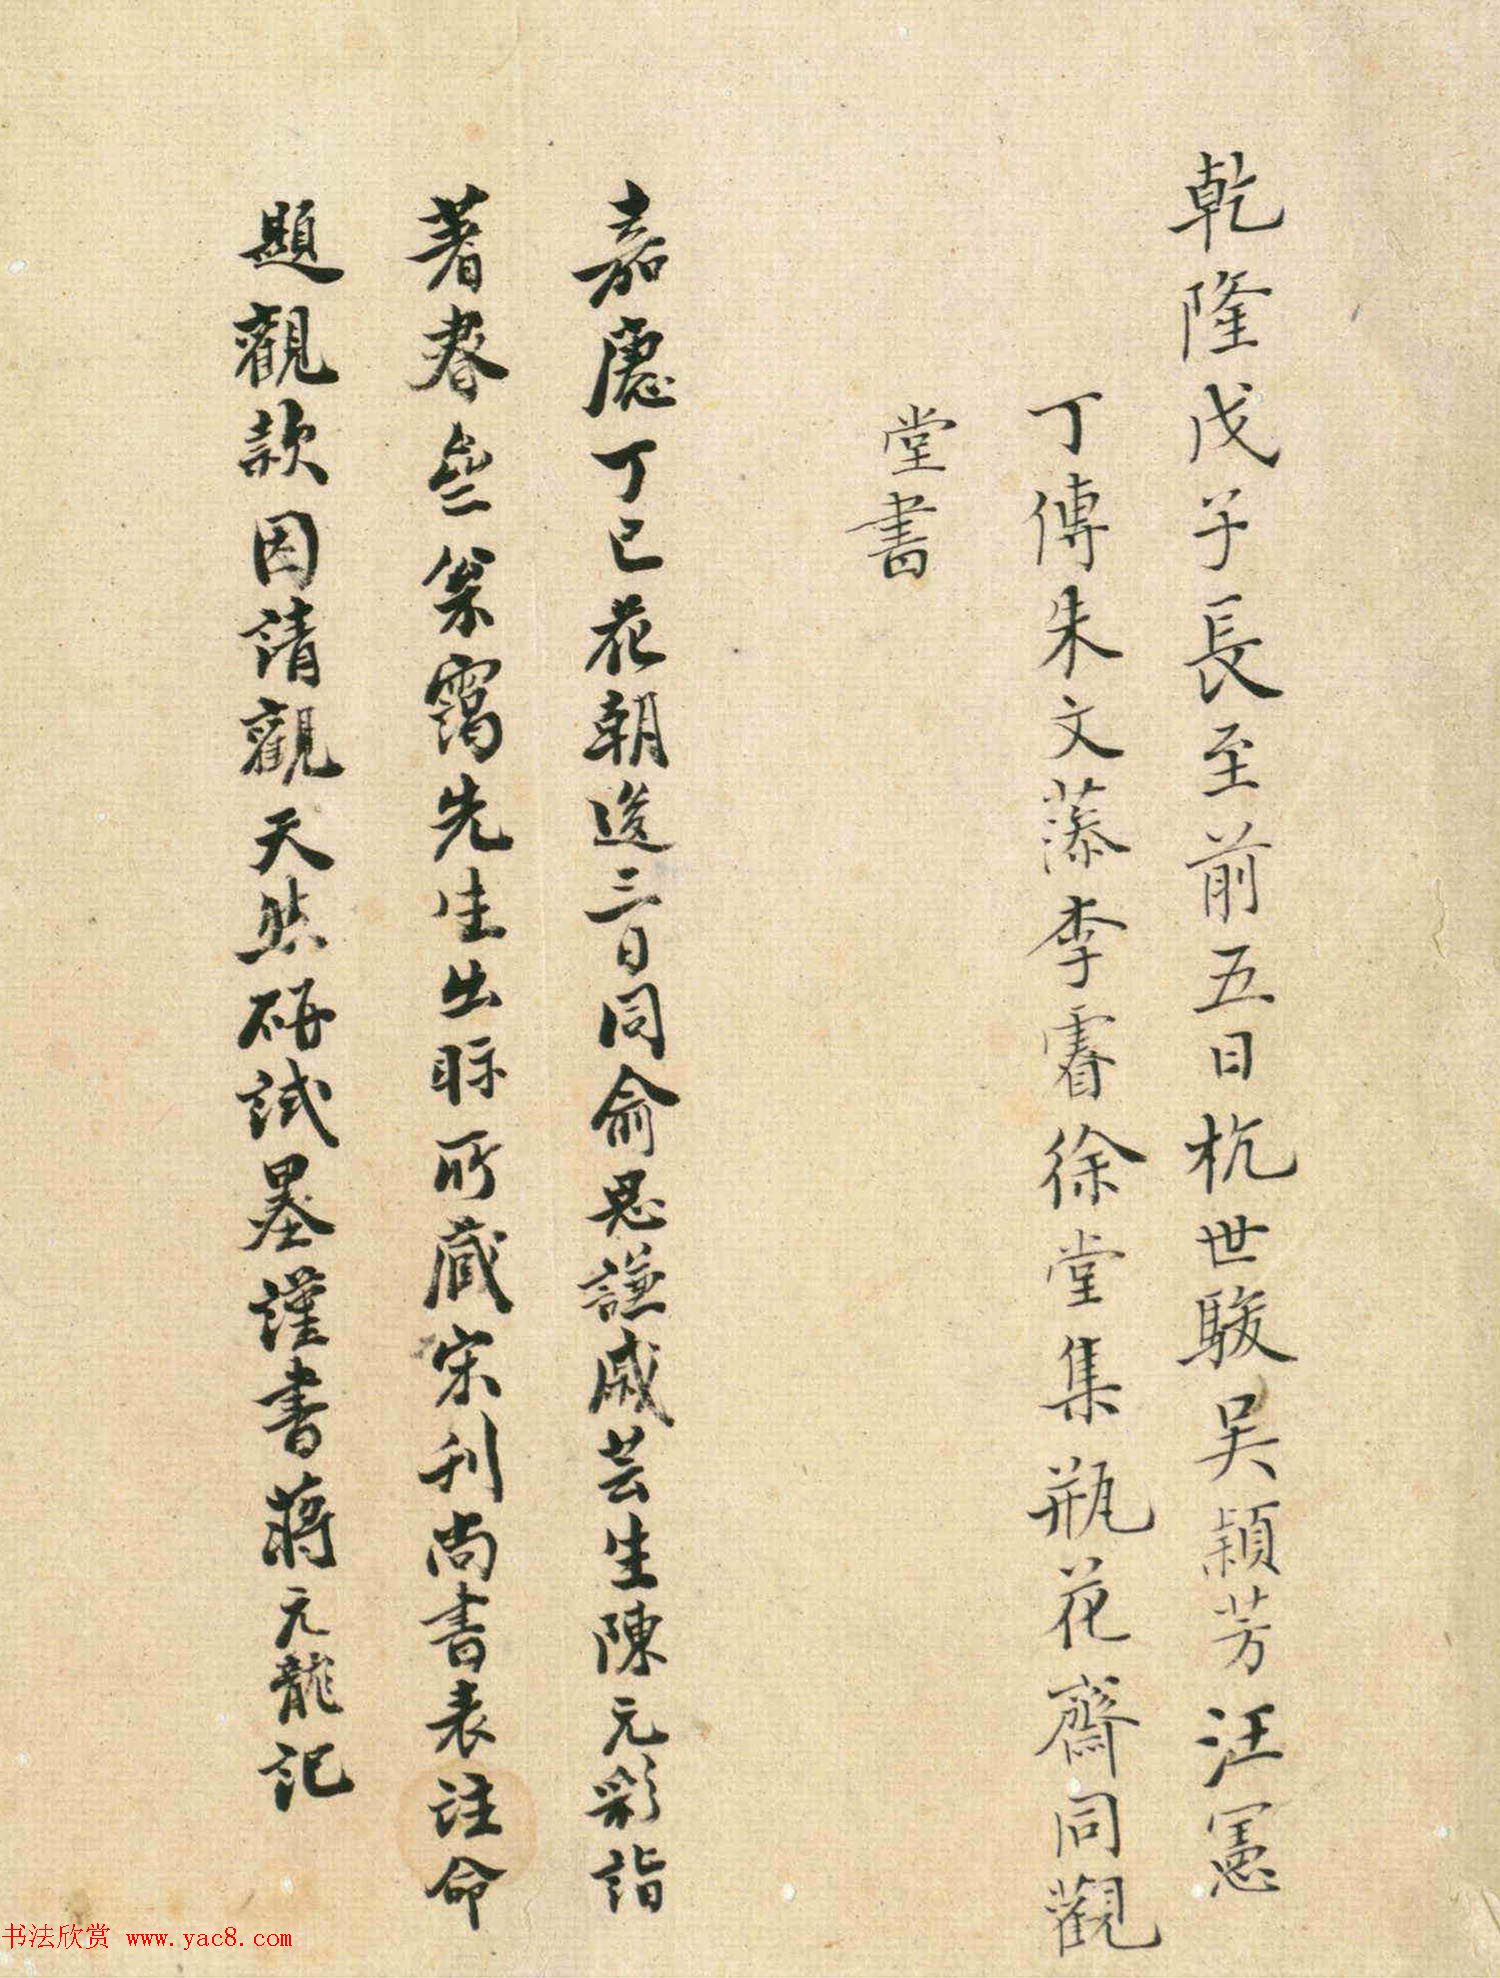 乾隆戊子長至前五日杭世駿吳穎芳汪憲
丁傳朱文藻李睿徐堂集瓶花齋同觀
堂書
嘉慶丁巳花朝後三日同俞思謙戚芸生陳元彩詣
著春翁靄先生出眎所藏宋刊尚書表註命
題觀款因請觀天然研試墨謹書蔣元龍記
书法欣赏 www.yac8.com